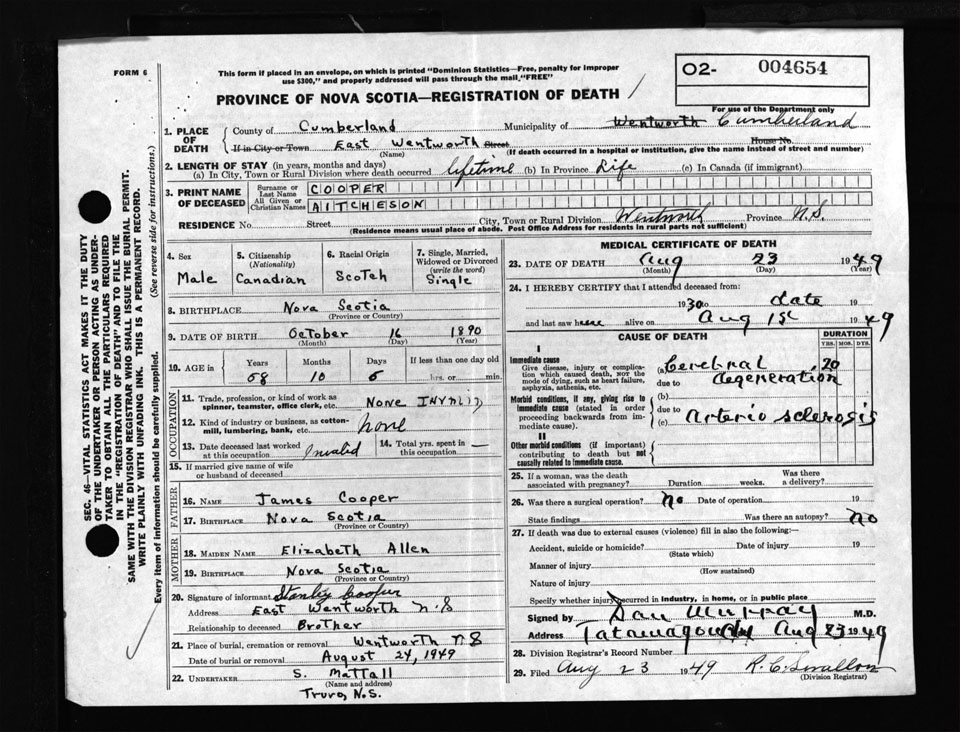 FORM 6
This form if placed in an envelope, on which is printed "Dominion Statistics—Free, penalty for improper
use $300," and properly addressed will pass through the mail "FREE"
PROVINCE OF NOVA SCOTIA—REGISTRATION OF DEATH /
O2- 004654
For use of the Department only
1. PLACE OF DEATH
County of Cumberland Municipality of Wentworth Cumberland
If in City or Town East Wentworth Street House No.
(Name) (If death occurred in a hospital or institution, give the name instead of street and number)
2. LENGTH OF STAY (in years, months and days)
(a) In City, Town or Rural Division where death occurred lifetime (b) In Province Life (c) In Canada (if immigrant)
3. PRINT NAME OF DECEASED
Surname or Last Name COOPER
All Given or Christian Names AITCHESON
RESIDENCE No. Street City, Town or Rural Division Wentworth Province N.S.
(Residence means usual place of abode. Post Office Address for residents in rural parts not sufficient)
4. Sex Male
5. Citizenship (Nationality) Canadian
6. Racial Origin Scotch
7. Single, Married, Widowed or Divorced (write the word) Single
8. BIRTHPLACE Nova Scotia
(Province or Country)
9. DATE OF BIRTH October 16 1890
(Month) (Day) (Year)
10. AGE in Years Months Days If less than one day old
58 10 6 hrs. or min.
OCCUPATION
11. Trade, profession, or kind of work as spinner, teamster, office clerk, etc. None INVALID
12. Kind of industry or business, as cotton-mill, lumbering, bank, etc. None
13. Date deceased last worked at this occupation Invalid
14. Total yrs. spent in this occupation —
15. If married give name of wife or husband of deceased
FATHER
16. NAME James Cooper
17. BIRTHPLACE Nova Scotia
(Province or Country)
MOTHER
18. MAIDEN NAME Elizabeth Allen
19. BIRTHPLACE Nova Scotia
(Province or Country)
20. Signature of informant Stanley Cooper
Address East Wentworth N.S
Relationship to deceased Brother
21. Place of burial, cremation or removal Wentworth N.S
Date of burial or removal August 24, 1949
22. UNDERTAKER S. Mattall
(Name and address)
Truro, N.S.
MEDICAL CERTIFICATE OF DEATH
23. DATE OF DEATH Aug 23 1949
(Month) (Day) (Year)
24. I HEREBY CERTIFY that I attended deceased from:
1930 to date 19
and last saw h alive on Aug 1st 1949
CAUSE OF DEATH
DURATION
YRS. MOS. DYS.
I
Immediate cause
Give disease, injury or complication which caused death, NOT the mode of dying, such as heart failure, asphyxia, asthenia, etc.
(a) Cerebral 20
due to degeneration
Morbid conditions, if any, giving rise to immediate cause (stated in order proceeding backwards from immediate cause).
(b)
due to
(c) Arterio sclerosis
II
Other morbid conditions (if important) contributing to death but not causally related to immediate cause.
25. If a woman, was the death associated with pregnancy? Duration weeks. Was there a delivery?
26. Was there a surgical operation? No Date of operation 19
State findings Was there an autopsy? No
27. If death was due to external causes (violence) fill in also the following:—
Accident, suicide or homicide? Date of injury 19
(State which)
Manner of injury
(How sustained)
Nature of injury
Specify whether injury occurred in industry, in home, or in public place
Signed by Dan Murray M.D.
Address Tatamagouche Aug 23 1949
28. Division Registrar's Record Number
29. Filed Aug 23 1949 R. C. Swallow
(Division Registrar)
SEC. 46—VITAL STATISTICS ACT MAKES IT THE DUTY
OF THE UNDERTAKER OR PERSON ACTING AS UNDER-
TAKER TO OBTAIN ALL THE PARTICULARS REQUIRED
IN THE "REGISTRATION OF DEATH" AND TO FILE THE
SAME WITH THE DIVISION REGISTRAR WHO SHALL ISSUE THE BURIAL PERMIT.
WRITE PLAINLY WITH UNFADING INK. THIS IS A PERMANENT RECORD.
Every item of information should be carefully supplied. (See reverse side for instructions.)